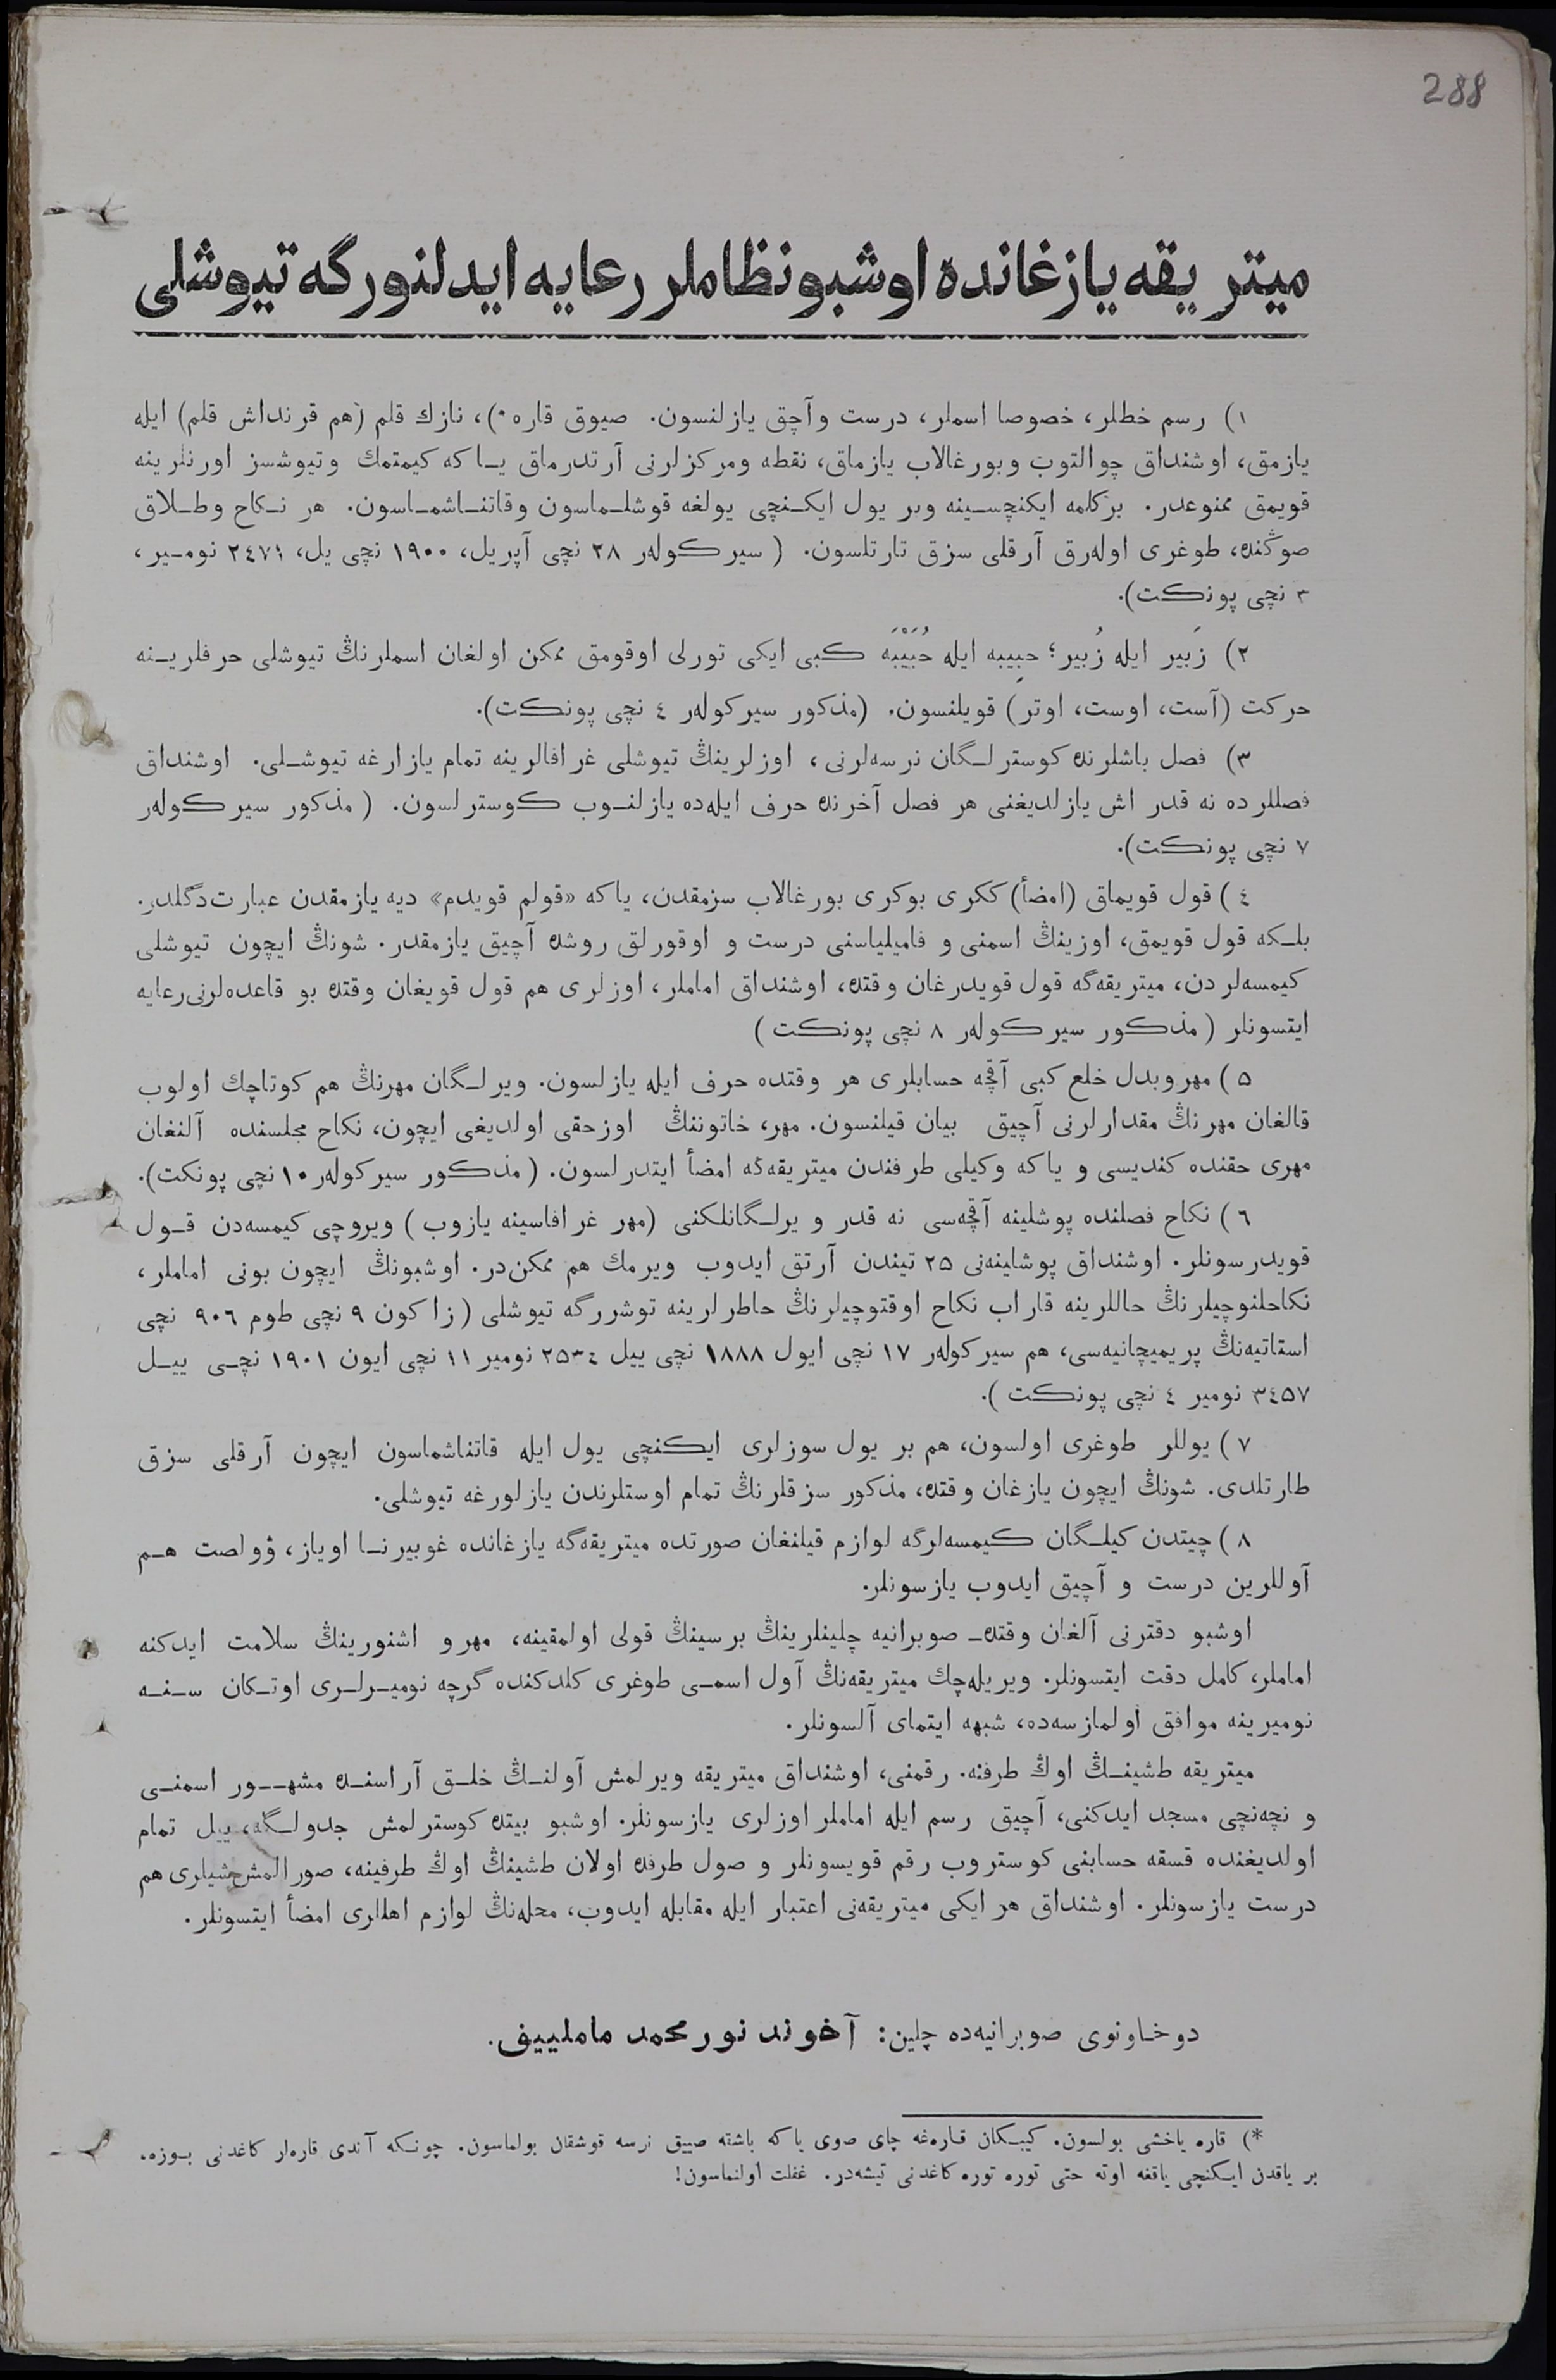 288
ميتريقه يازغانده اوشبو نظاملر رعايه ايدلنورگه تيوشلى
١) رسم خطلر، خصوصا اسملر، درست وآچق يازلنسون. صيوق قاره*)، نازك قلم (هم قرنداش قلم) ايله
يازمق، اوشنداق چوالتوب وبورغالاب يازماق، نقطه ومركزلرنى آرتدرماق يـاكه كيمتمك وتيوشسز اورنلرينه
قويمق ممنوعدر. بركلمه ايكنچسـينه وبر يول ايكـنچى يولغه قوشلـماسون وقاتنـاشمـاسون. هر نـكاح وطـلاق
صوڭنده، طوغرى اوله‌رق آرقلى سزق تارتلسون. (سيركوله‌ر ٢٨ نچى آپريل، ١٩٠٠ نچى يل، ٢٤٧١ نومـير،
٣ نچى پونكت).
٢) زَبير ايله زُبير؛ حبِيبه ايله حُبَيْبَه كبى ايكى تورلى اوقومق ممكن اولغان اسملرنڭ تيوشلى حرفلريـنه
حركت (آست، اوست، اوتر) قويلنسون. (مذكور سيركوله‌ر ٤ نچى پونكت).
٣) فصل باشلرنده كوسترلـگان نرسه‌لرنى، اوزلرينڭ تيوشلى غرافالرينه تمام يازارغه تيوشـلى. اوشنداق
فصللرده نه قدر اش يازلديغنى هر فصل آخرنده حرف ايله‌ده يازلنـوب كوسترلسون. (مذكور سيركوله‌ر
٧ نچى پونكت).
٤) قول قويماق (امضأ) ككرى بوكرى بورغالاب سزمقدن، ياكه «قولم قويدم» ديه يازمقدن عبارت دگلدر.
بلـكه قول قويمق، اوزينڭ اسمنى و فاميلياسنى درست و اوقورلق روشده آچيق يازمقدر. شونڭ ايچون تيوشلى
كيمسه‌لردن، ميتريقه‌گه قول قويدرغان وقتده، اوشنداق اماملر، اوزلرى هم قول قويغان وقتده بو قاعده‌لرنى رعايه
ايتسونلر (مذكور سيركوله‌ر ٨ نچى پونكت)
٥) مهر وبدل خلع كبى آقچه حسابلرى هر وقتده حرف ايله يازلسون. ويرلـگان مهرنڭ هم كوتاچك اولوب
قالغان مهرنڭ مقدارلرنى آچيق بيان قيلنسون. مهر، خاتوننڭ اوزحقى اولديغى ايچون، نكاح مجلسنده آلنغان
مهرى حقنده كنديسى و ياكه وكيلى طرفندن ميتريقه‌گه امضأ ايتدرلسون. (مذكور سيركوله‌ر ١٠ نچى پونكت).
٦) نكاح فصلنده پوشلينه آقچه‌سى نه قدر ويرلـگانلكنى (مهر غرافاسينه يازوب) ويروچى كيمسه‌دن قـول
قويدرسونلر. اوشنداق پوشلينه‌نى ٢٥ تيندن آرتق ايدوب ويرمك هم ممكن‌در. اوشبونڭ ايچون بونى اماملر،
نكاحلنوچيلرنڭ حاللرينه قاراب نكاح اوقتوچيلرنڭ خاطرلرينه توشررگه تيوشلى (زاكون ٩ نچى طوم ٩٠٦ نچى
استاتيه‌نڭ پريميچانيه‌سى، هم سيركوله‌ر ١٧ نچى ايول ١٨٨٨ نچى ييل ٢٥٣٤ نومير ١١ نچى ايون ١٩٠١ نچـى ييـل
٣٤٥٧ نومير ٤ نچى پونكت).
٧) يوللر طوغرى اولسون، هم بر يول سوزلرى ايكنچى يول ايله قاتناشماسون ايچون آرقلى سزق
طارتلدى. شونڭ ايچون يازغان وقتده، مذكور سزقلرنڭ تمام اوستلرندن يازلورغه تيوشلى.
٨) چيتدن كيلـگان كيمسه‌لرگه لوازم قيلنغان صورتده ميتريقه‌گه يازغانده غوبيرنـا اوياز، ۋولصت هـم
آوللرين درست و آچيق ايدوب يازسونلر.
اوشبو دفترنى آلغان وقتده صوبرانيه چلينلرينڭ برسينڭ قولى اولمقينه، مهر و اشنورينڭ سلامت ايدكنه
اماملر، كامل دقت ايتسونلر. ويريله‌چك ميتريقه‌نڭ آول اسمـى طوغرى كلدكنده گرچه نوميـرلـرى اوتـكان سـنـه
نوميرينه موافق اولمازسه‌ده، شبهه ايتماى آلسونلر.
ميتريقه طشينـڭ اوڭ طرفنه. رقمنى، اوشنداق ميتريقه ويرلمش آولنـڭ خلـق آراسنـده مشهــور اسمنـى
و نچه‌نچى مسجد ايدكنى، آچيق رسم ايله اماملر اوزلرى يازسونلر. اوشبو بيتده كوسترلمش جدولـگه، ييل تمام
اولديغنده قسقه حسابنى كوستروب رقم قويسونلر و صول طرفده اولان طشينڭ اوڭ طرفينه، صورالمش شيلرى هم
درست يازسونلر. اوشنداق هر ايكى ميتريقه‌نى اعتبار ايله مقابله ايدوب، محله‌نڭ لوازم اهاللرى امضأ ايتسونلر.
دوخـاونوى صوبرانيه‌ده چلين: آخوند نورمحمد ماملييف.
*) قاره ياخشى بولسون. كيبـكان قـاره‌غه چاى صوى ياكه باشقه صييق نرسه قوشقان بولماسون. چونـكه آندى قاره‌لر كاغدنى بـوزه،
بر ياقدن ايكنچى ياقغه اوته حتى توره توره كاغدنى تيشه‌در. غفلت اولنماسون!